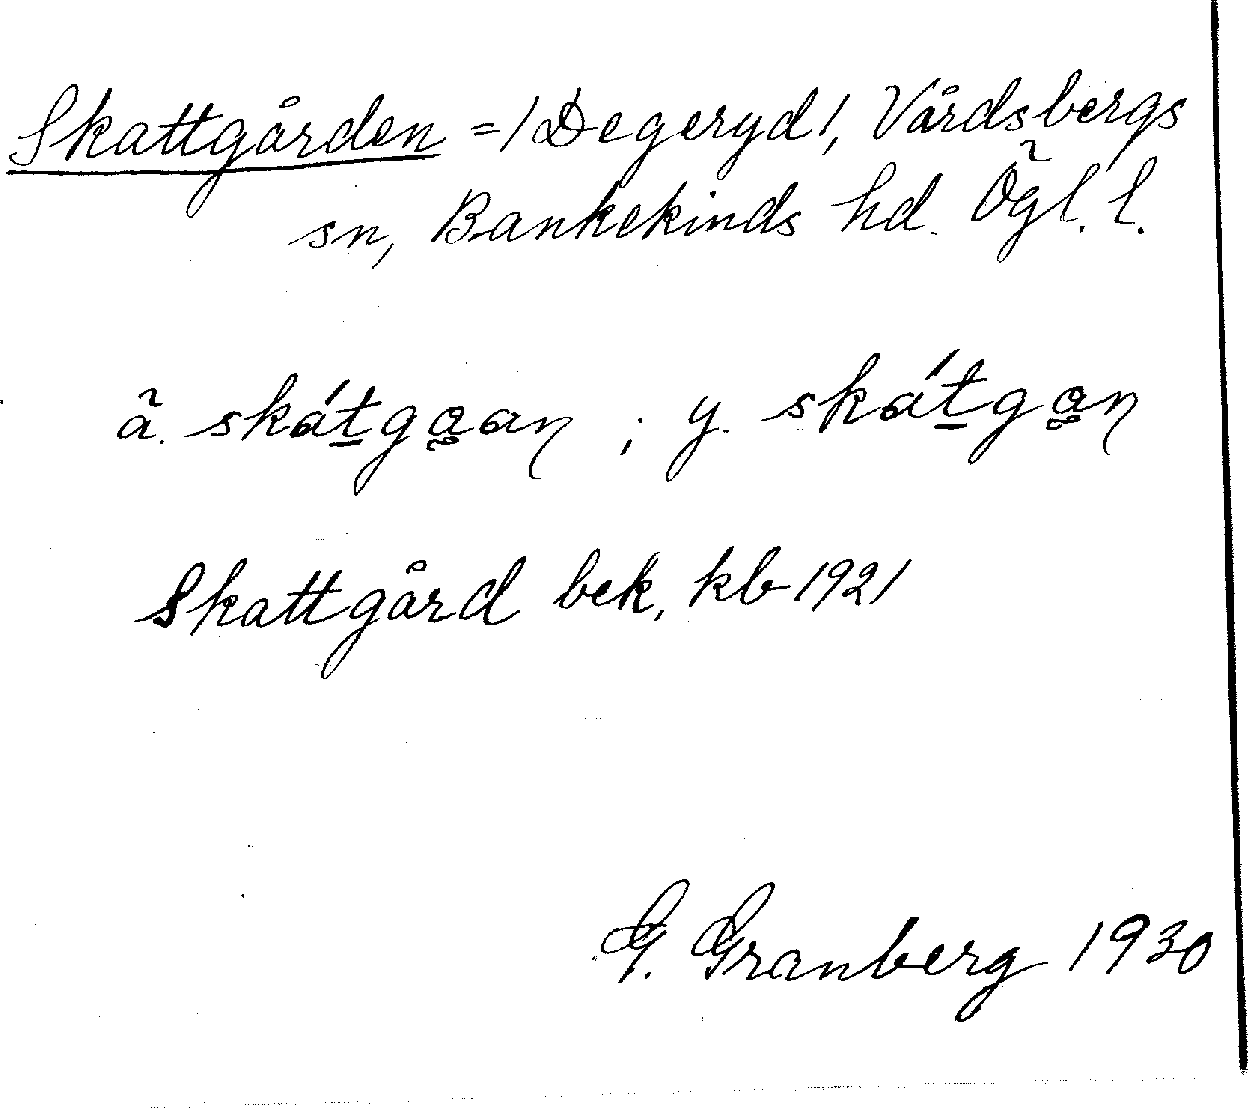 Skattgården = /Degeryd/, Vårdsbergs
sn, Bankekinds hd. Ögl. l.
ä. skát̠gḁan ; y. skát̠gḁn
Skattgård bek, kb 1921
G. Granberg 1930